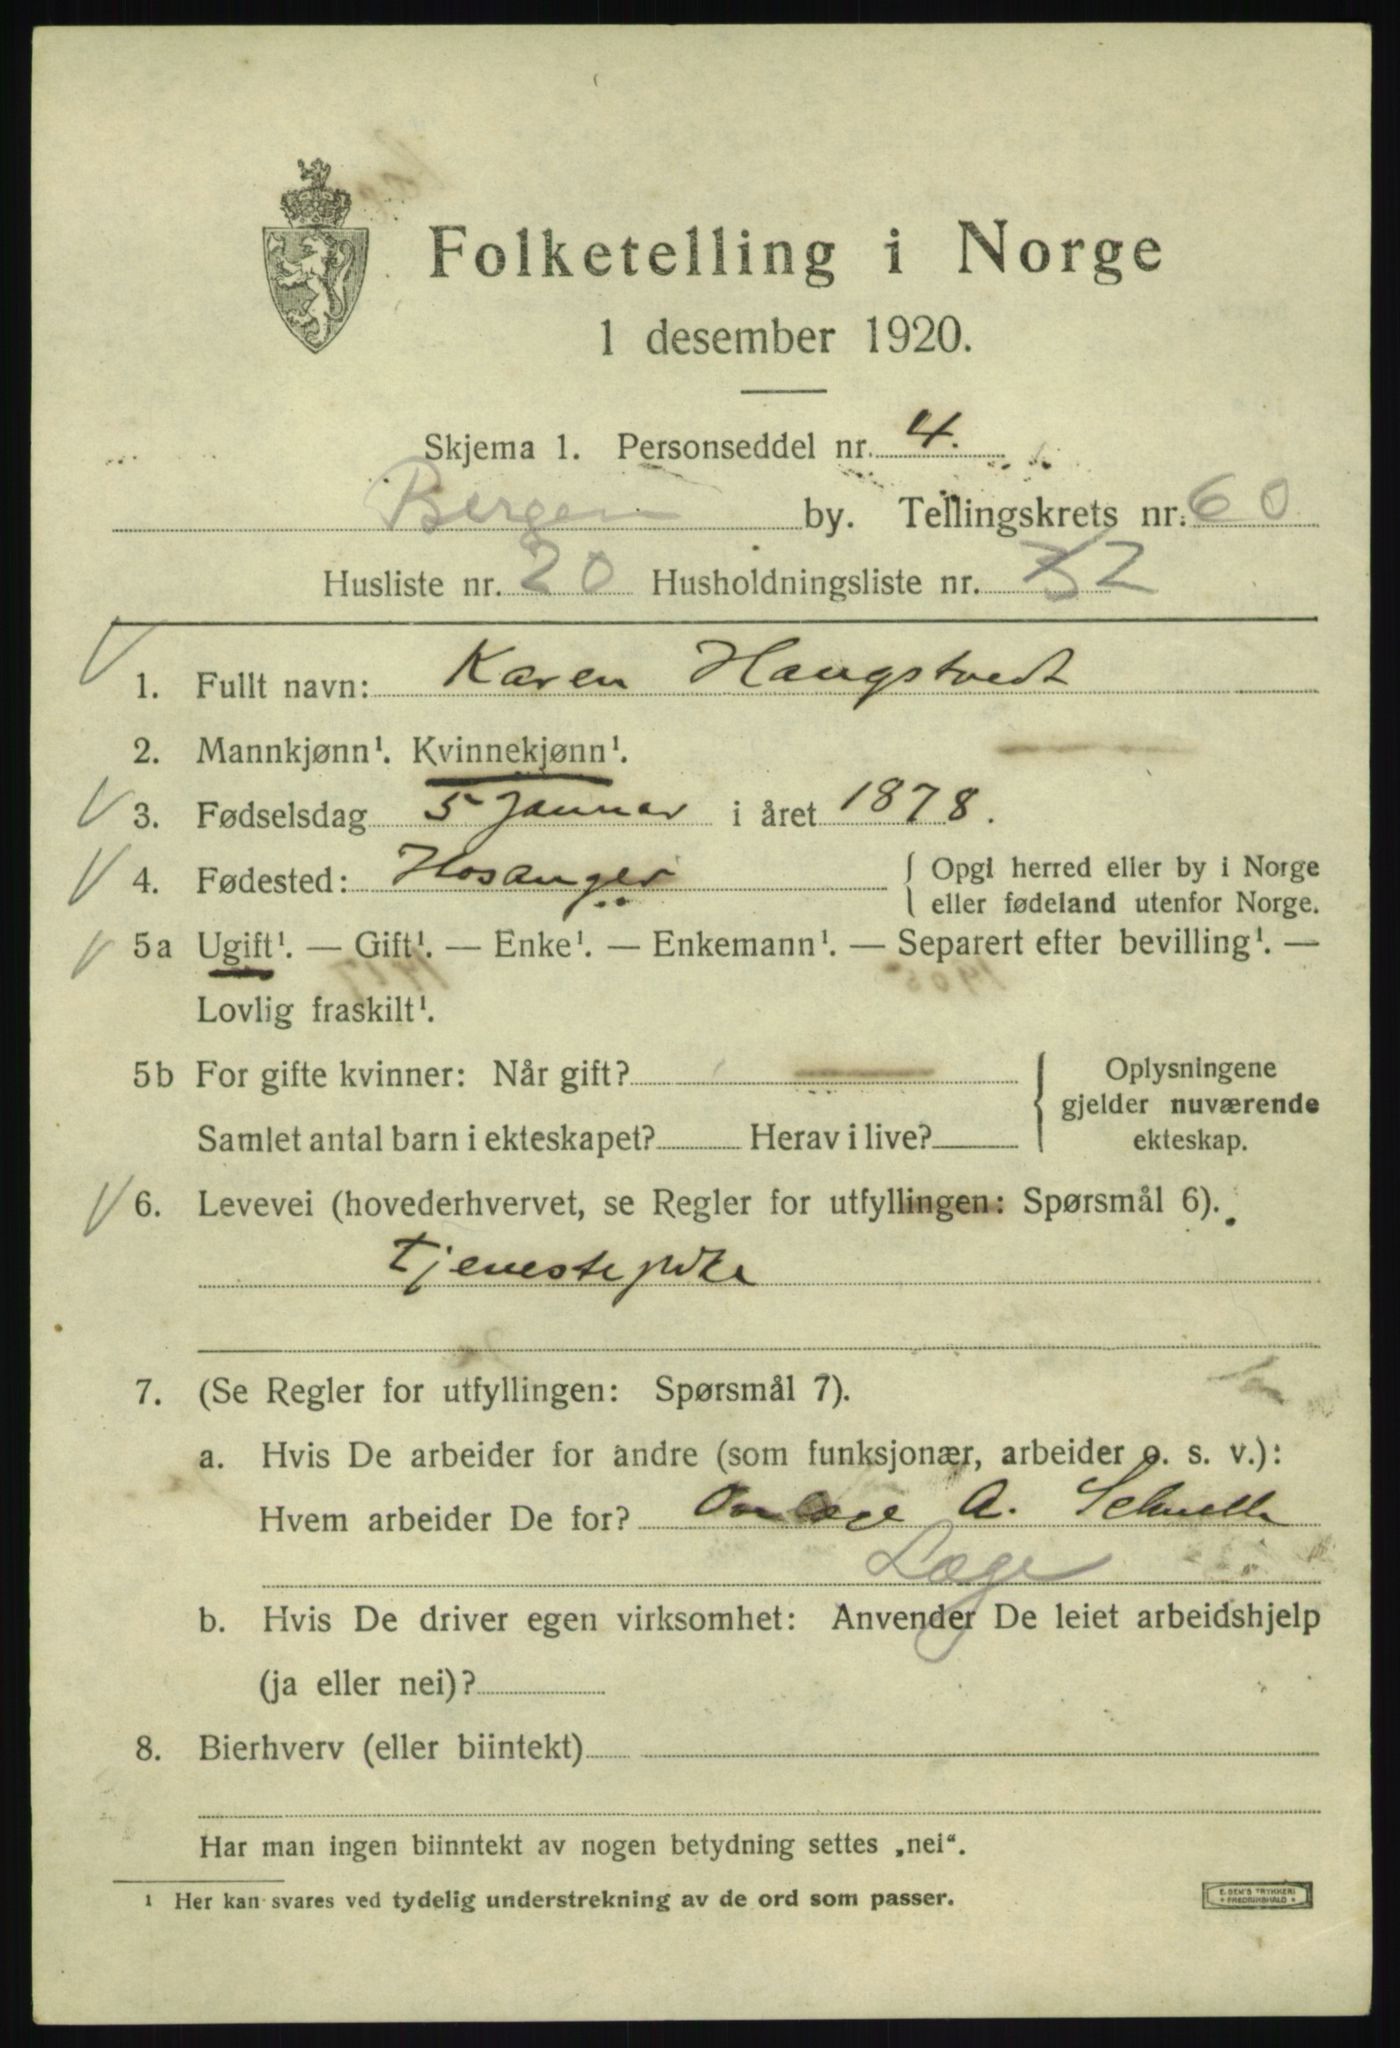 Folketelling i Norge
1 desember 1920.
Skjema 1. Personseddel nr. 4.
Bergen by. Tellingskrets nr. 60
Husliste nr. 20 Husholdningsliste nr. 32
1. Fullt navn: Karen Haugstvedt
2. Mannkjønn¹. Kvinnekjønn¹.
3. Fødselsdag 5 Januar i året 1878.
4. Fødested: Hosanger { Opgi herred eller by i Norge
eller fødeland utenfor Norge.
5a Ugift¹. — Gift¹. — Enke¹. — Enkemann¹. — Separert efter bevilling¹. —
Lovlig fraskilt¹.
5b For gifte kvinner: Når gift? { Oplysningene
gjelder nuværende
Samlet antal barn i ekteskapet? Herav i live? ekteskap.
6. Levevei (hovederhvervet, se Regler for utfyllingen: Spørsmål 6).
Tjenestepike
7. (Se Regler for utfyllingen: Spørsmål 7).
a. Hvis De arbeider for andre (som funksjonær, arbeider o. s. v.):
Hvem arbeider De for? A.
Læge
b. Hvis De driver egen virksomhet: Anvender De leiet arbeidshjelp
(ja eller nei)?
8. Bierhverv (eller biintekt)
Har man ingen biinntekt av nogen betydning settes „nei“.
¹ Her kan svares ved tydelig understrekning av de ord som passer.
E. SEM'S TRYKKERI
FREDRIKSHALD